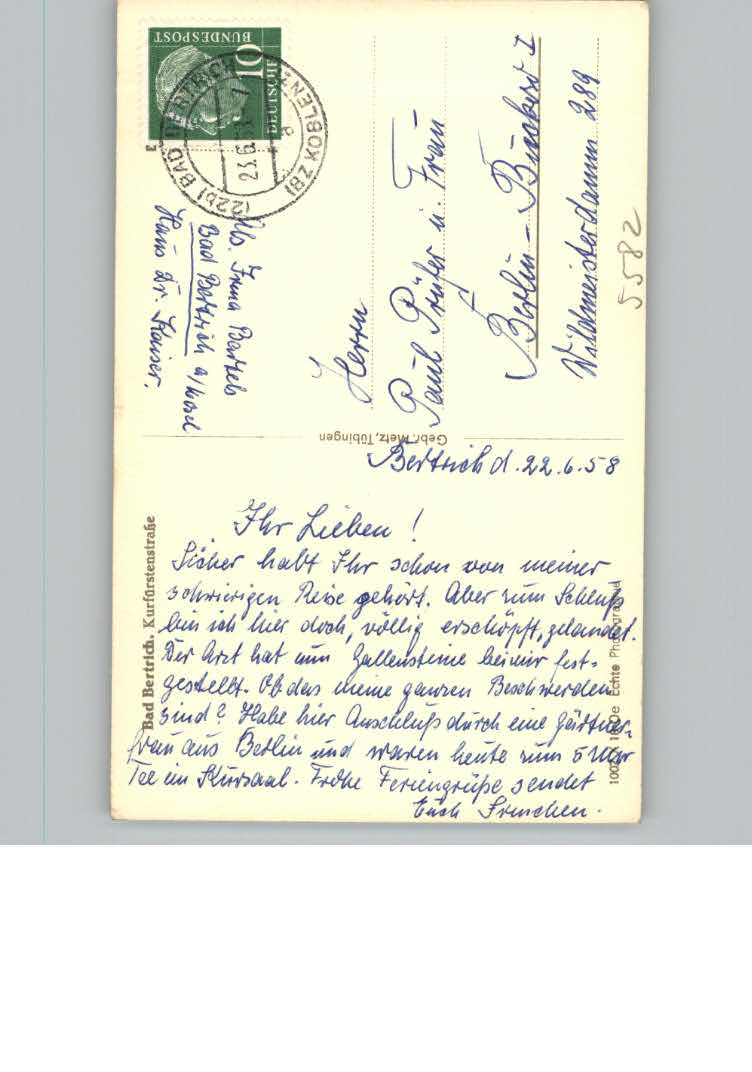 Bertrich d. 22.6.58
Ihr Lieben!
Sicher habt Ihr schon von meiner
schwierigen Reise gehört. Aber zum Schluß
bin ich hier doch, völlig erschöpft, gelandet.
Der Arzt hat nun Gallensteine bei mir fest-
gestellt. Ob das meine ganzen Beschwerden
sind? Habe hier Anschluß durch eine Gärtner-
frau aus Berlin und waren heute zum 5 Uhr
Tee im Kursaal. Frohe Feriengrüße sendet
Euch Irmchen.
Abs. Irma Bartels
Bad Bertrich a/Mosel
Haus Dr. Kaiser.
Herrn
Paul Prüfer u. Frau
Berlin-Buckow I
Wildmeisterdamm 289
5582
DEUTSCHE
BUNDESPOST
10
(22b) BAD BERTRICH
KOBLENZ
23.6.
e
Bad Bertrich. Kurfürstenstraße
Gebr. Metz, Tübingen
Echte